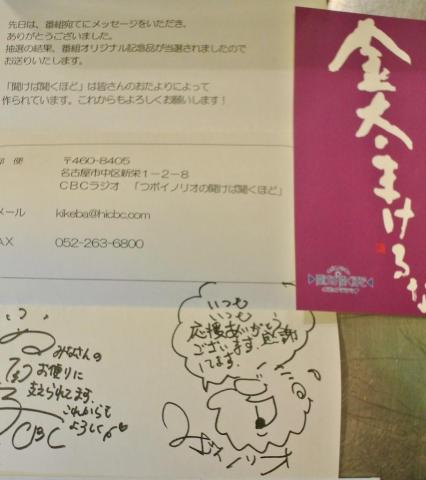 先日は、番組宛てにメッセージをいただき、
ありがとうございました。
抽選の結果、番組オリジナル記念品が当選されましたので
お送りいたします。
「聞けば聞くほど」は皆さんのおたよりによって
作られています。これからもよろしくお願いします！
郵 便 〒460-8405
名古屋市中区新栄１－２－８
ＣＢＣラジオ 「つボイノリオの聞けば聞くほど」
メール kikeba@hicbc.com
FAX 052-263-6800
金太・まけるな
聞けば聞くほど
みなさんの
お便りに
支えられてます、
これからも
よろしく
CBC
いつも
いつも
応援ありがとう
ございます、感謝
してます。